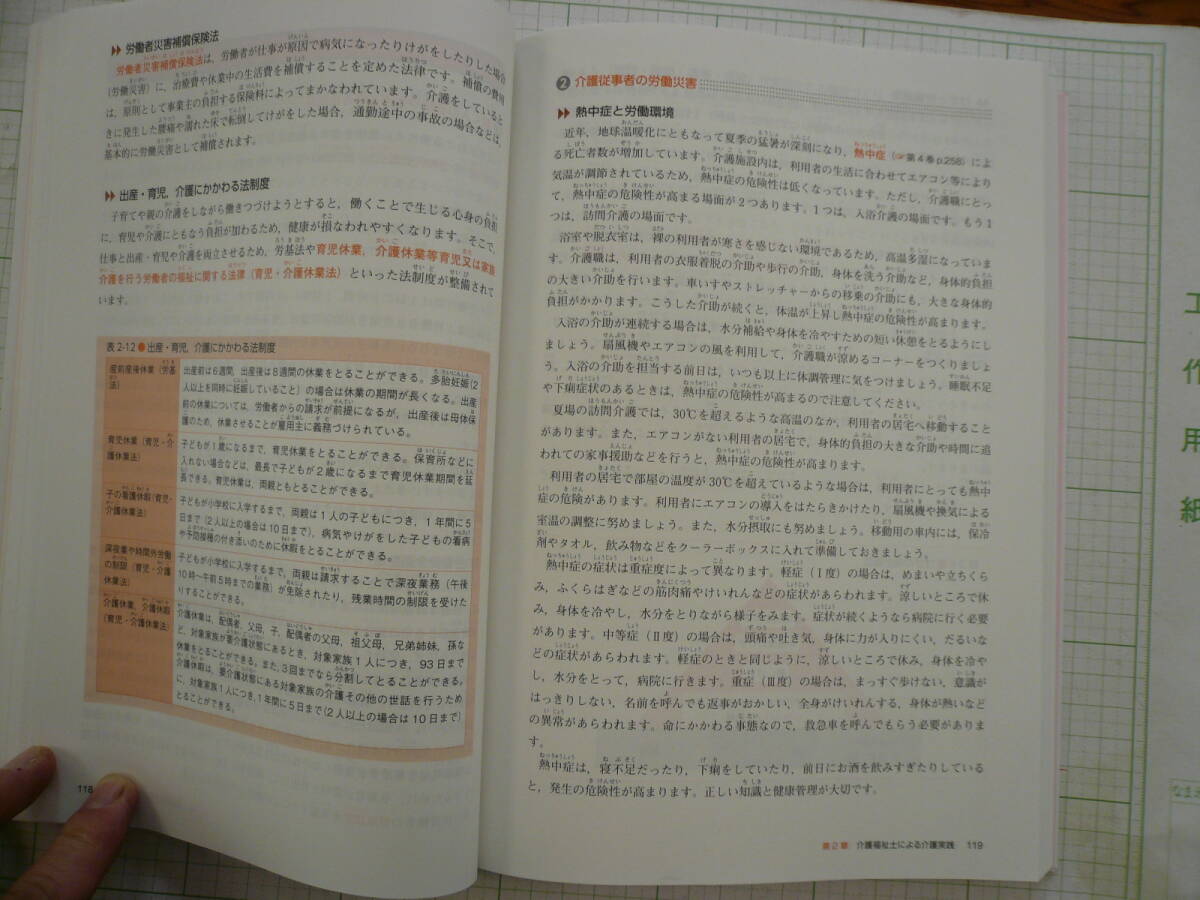 ▶▶ 労働者災害補償保険法
労働者災害補償保険法は，労働者が仕事が原因で病気になったりけがをしたりした場合
（労働災害）に，治療費や休業中の生活費を補償することを定めた法律です。補償の費用
は，原則として事業主の負担する保険料によってまかなわれています。介護をしていると
きに発生した腰痛や濡れた床で転倒してけがをした場合，通勤途中の事故の場合などは，
基本的に労働災害として補償されます。
▶▶ 出産・育児，介護にかかわる法制度
子育てや親の介護をしながら働きつづけようとすると，働くことで生じる心身の負担
に，育児や介護にともなう負担が加わるため，健康が損なわれやすくなります。そこで，
仕事と出産・育児や介護を両立させるため，労基法や育児休業，介護休業等育児又は家族
介護を行う労働者の福祉に関する法律（育児・介護休業法）といった法制度が整備されて
います。
表 2-12 ● 出産・育児，介護にかかわる法制度
産前産後休業（労基
法）
出産前は6週間，出産後は8週間の休業をとることができる。多胎妊娠（2
人以上を同時に妊娠していること）の場合は休業の期間が長くなる。出産
前の休業については，労働者からの請求が前提になるが，出産後は母体保
護のため，休業させることが雇用主に義務づけられている。
育児休業（育児・介
護休業法）
子どもが1歳になるまで，育児休業をとることができる。保育所などに
入れない場合などは，最長で子どもが2歳になるまで育児休業期間を延
長できる。育児休業は，両親ともとることができる。
子の看護休暇（育児・
介護休業法）
子どもが小学校に入学するまで，両親は1人の子どもにつき，1年間に5
日まで（2人以上の場合は10日まで），病気やけがをした子どもの看病
や予防接種の付き添いのために休暇をとることができる。
深夜業や時間外労働
の制限（育児・介護
休業法）
子どもが小学校に入学するまで，両親は請求することで深夜業務（午後
10時～午前5時までの業務）が免除されたり，残業時間の制限を受けた
りすることができる。
介護休業，介護休暇
（育児・介護休業法）
介護休業は，配偶者，父母，子，配偶者の父母，祖父母，兄弟姉妹，孫な
ど，対象家族が要介護状態にあるとき，対象家族1人につき，93日まで
休業をとることができる。また，3回までなら分割してとることができる。
介護休暇は，要介護状態にある対象家族の介護その他の世話を行うため
に，対象家族1人につき，1年間に5日まで（2人以上の場合は10日まで）
とることができる。
118
❷ 介護従事者の労働災害
▶▶ 熱中症と労働環境
近年，地球温暖化にともなって夏季の猛暑が深刻になり，熱中症（☞第4巻p.258）によ
る死亡者数が増加しています。介護施設内は，利用者の生活に合わせてエアコン等により
気温が調節されているため，熱中症の危険性は低くなっています。ただし，介護職にとっ
て，熱中症の危険性が高まる場面が2つあります。1つは，入浴介護の場面です。もう1
つは，訪問介護の場面です。
浴室や脱衣室は，裸の利用者が寒さを感じない環境であるため，高温多湿になっていま
す。介護職は，利用者の衣服着脱の介助や歩行の介助，身体を洗う介助など，身体的負担
の大きい介助を行います。車いすやストレッチャーからの移乗の介助にも，大きな身体的
負担がかかります。こうした介助が続くと，体温が上昇し熱中症の危険性が高まります。
入浴の介助が連続する場合は，水分補給や身体を冷やすための短い休憩をとるようにし
ましょう。扇風機やエアコンの風を利用して，介護職が涼めるコーナーをつくりましょ
う。入浴の介助を担当する前日は，いつも以上に体調管理に気をつけましょう。睡眠不足
や下痢症状のあるときは，熱中症の危険性が高まるので注意してください。
夏場の訪問介護では，30℃を超えるような高温のなか，利用者の居宅へ移動すること
があります。また，エアコンがない利用者の居宅で，身体的負担の大きな介助や時間に追
われての家事援助などを行うと，熱中症の危険性が高まります。
利用者の居宅で部屋の温度が30℃を超えているような場合は，利用者にとっても熱中
症の危険があります。利用者にエアコンの導入をはたらきかけたり，扇風機や換気による
室温の調整に努めましょう。また，水分摂取にも努めましょう。移動用の車内には，保冷
剤やタオル，飲み物などをクーラーボックスに入れて準備しておきましょう。
熱中症の症状は重症度によって異なります。軽症（Ⅰ度）の場合は，めまいや立ちくら
み，ふくらはぎなどの筋肉痛やけいれんなどの症状があらわれます。涼しいところで休
み，身体を冷やし，水分をとりながら様子をみます。症状が続くようなら病院に行く必要
があります。中等症（Ⅱ度）の場合は，頭痛や吐き気，身体に力が入りにくい，だるいな
どの症状があらわれます。軽症のときと同じように，涼しいところで休み，身体を冷や
し，水分をとって，病院に行きます。重症（Ⅲ度）の場合は，まっすぐ歩けない，意識が
はっきりしない，名前を呼んでも返事がおかしい，全身がけいれんする，身体が熱いなど
の異常があらわれます。命にかかわる事態なので，救急車を呼んでもらう必要がありま
す。
熱中症は，寝不足だったり，下痢をしていたり，前日にお酒を飲みすぎたりしている
と，発生の危険性が高まります。正しい知識と健康管理が大切です。
第2章 介護福祉士による介護実践 119
工作用紙
なまえ